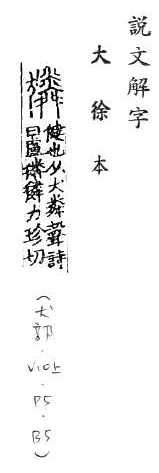 説文解字
大徐本
獜
健也从犬粦聲詩
曰盧獜獜力珍切
(犬部.V10上.P5.B5)